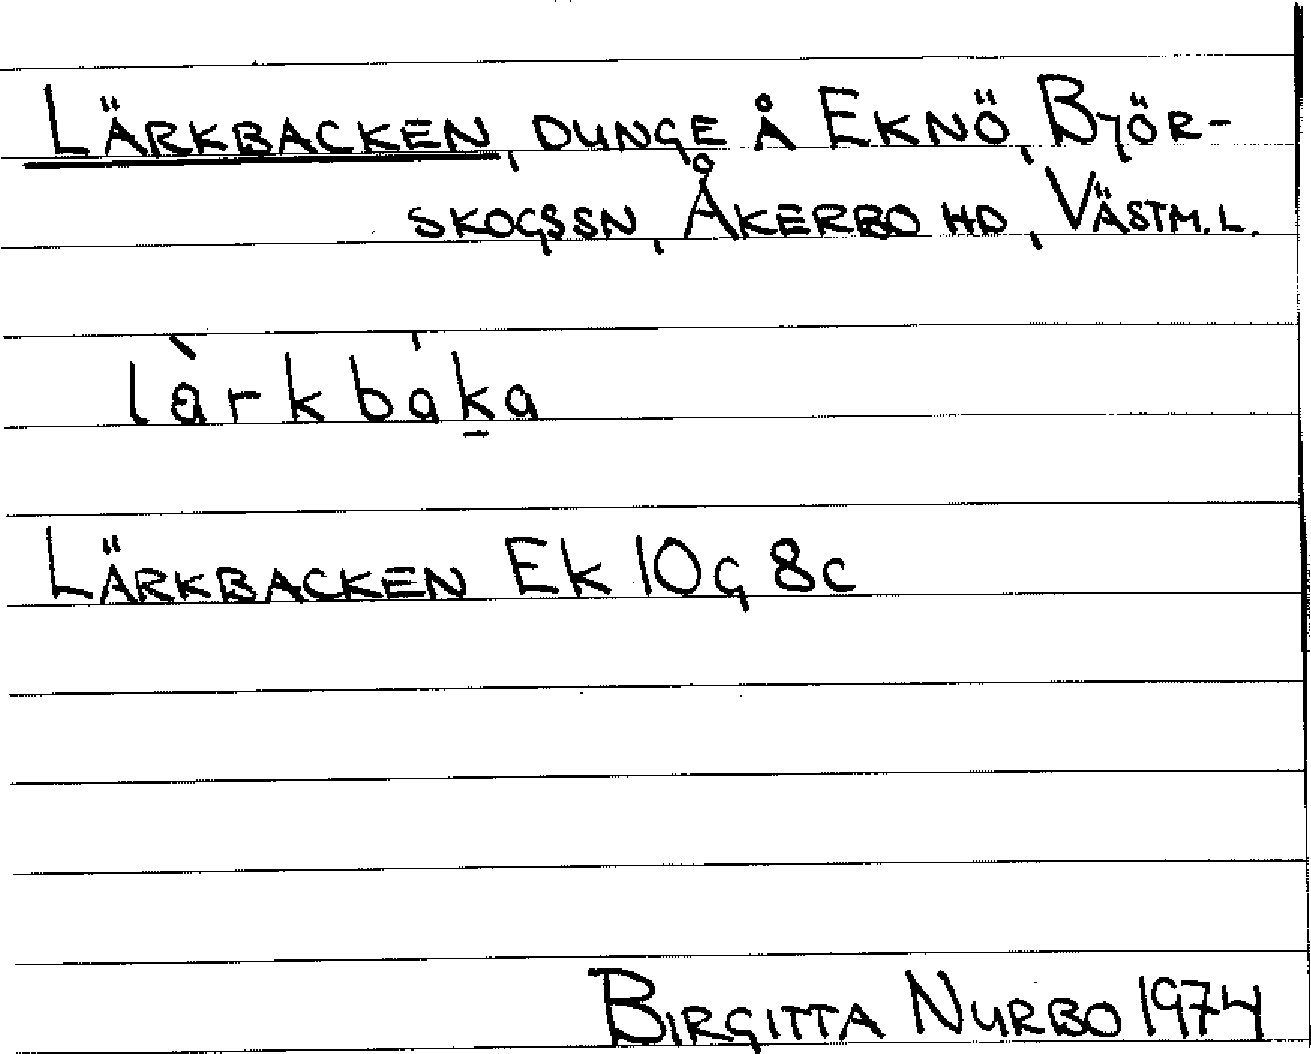 LÄRKBACKEN, DUNGE Å EKNÖ, BJÖR-
SKOGS SN, ÅKERBO HD, VÄSTM. L.
lạ̀rkbáḵa
LÄRKBACKEN Ek 10g 8c
BIRGITTA NURBO 1974